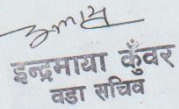 इन्द्रमाया कुँवर
वडा सचिव